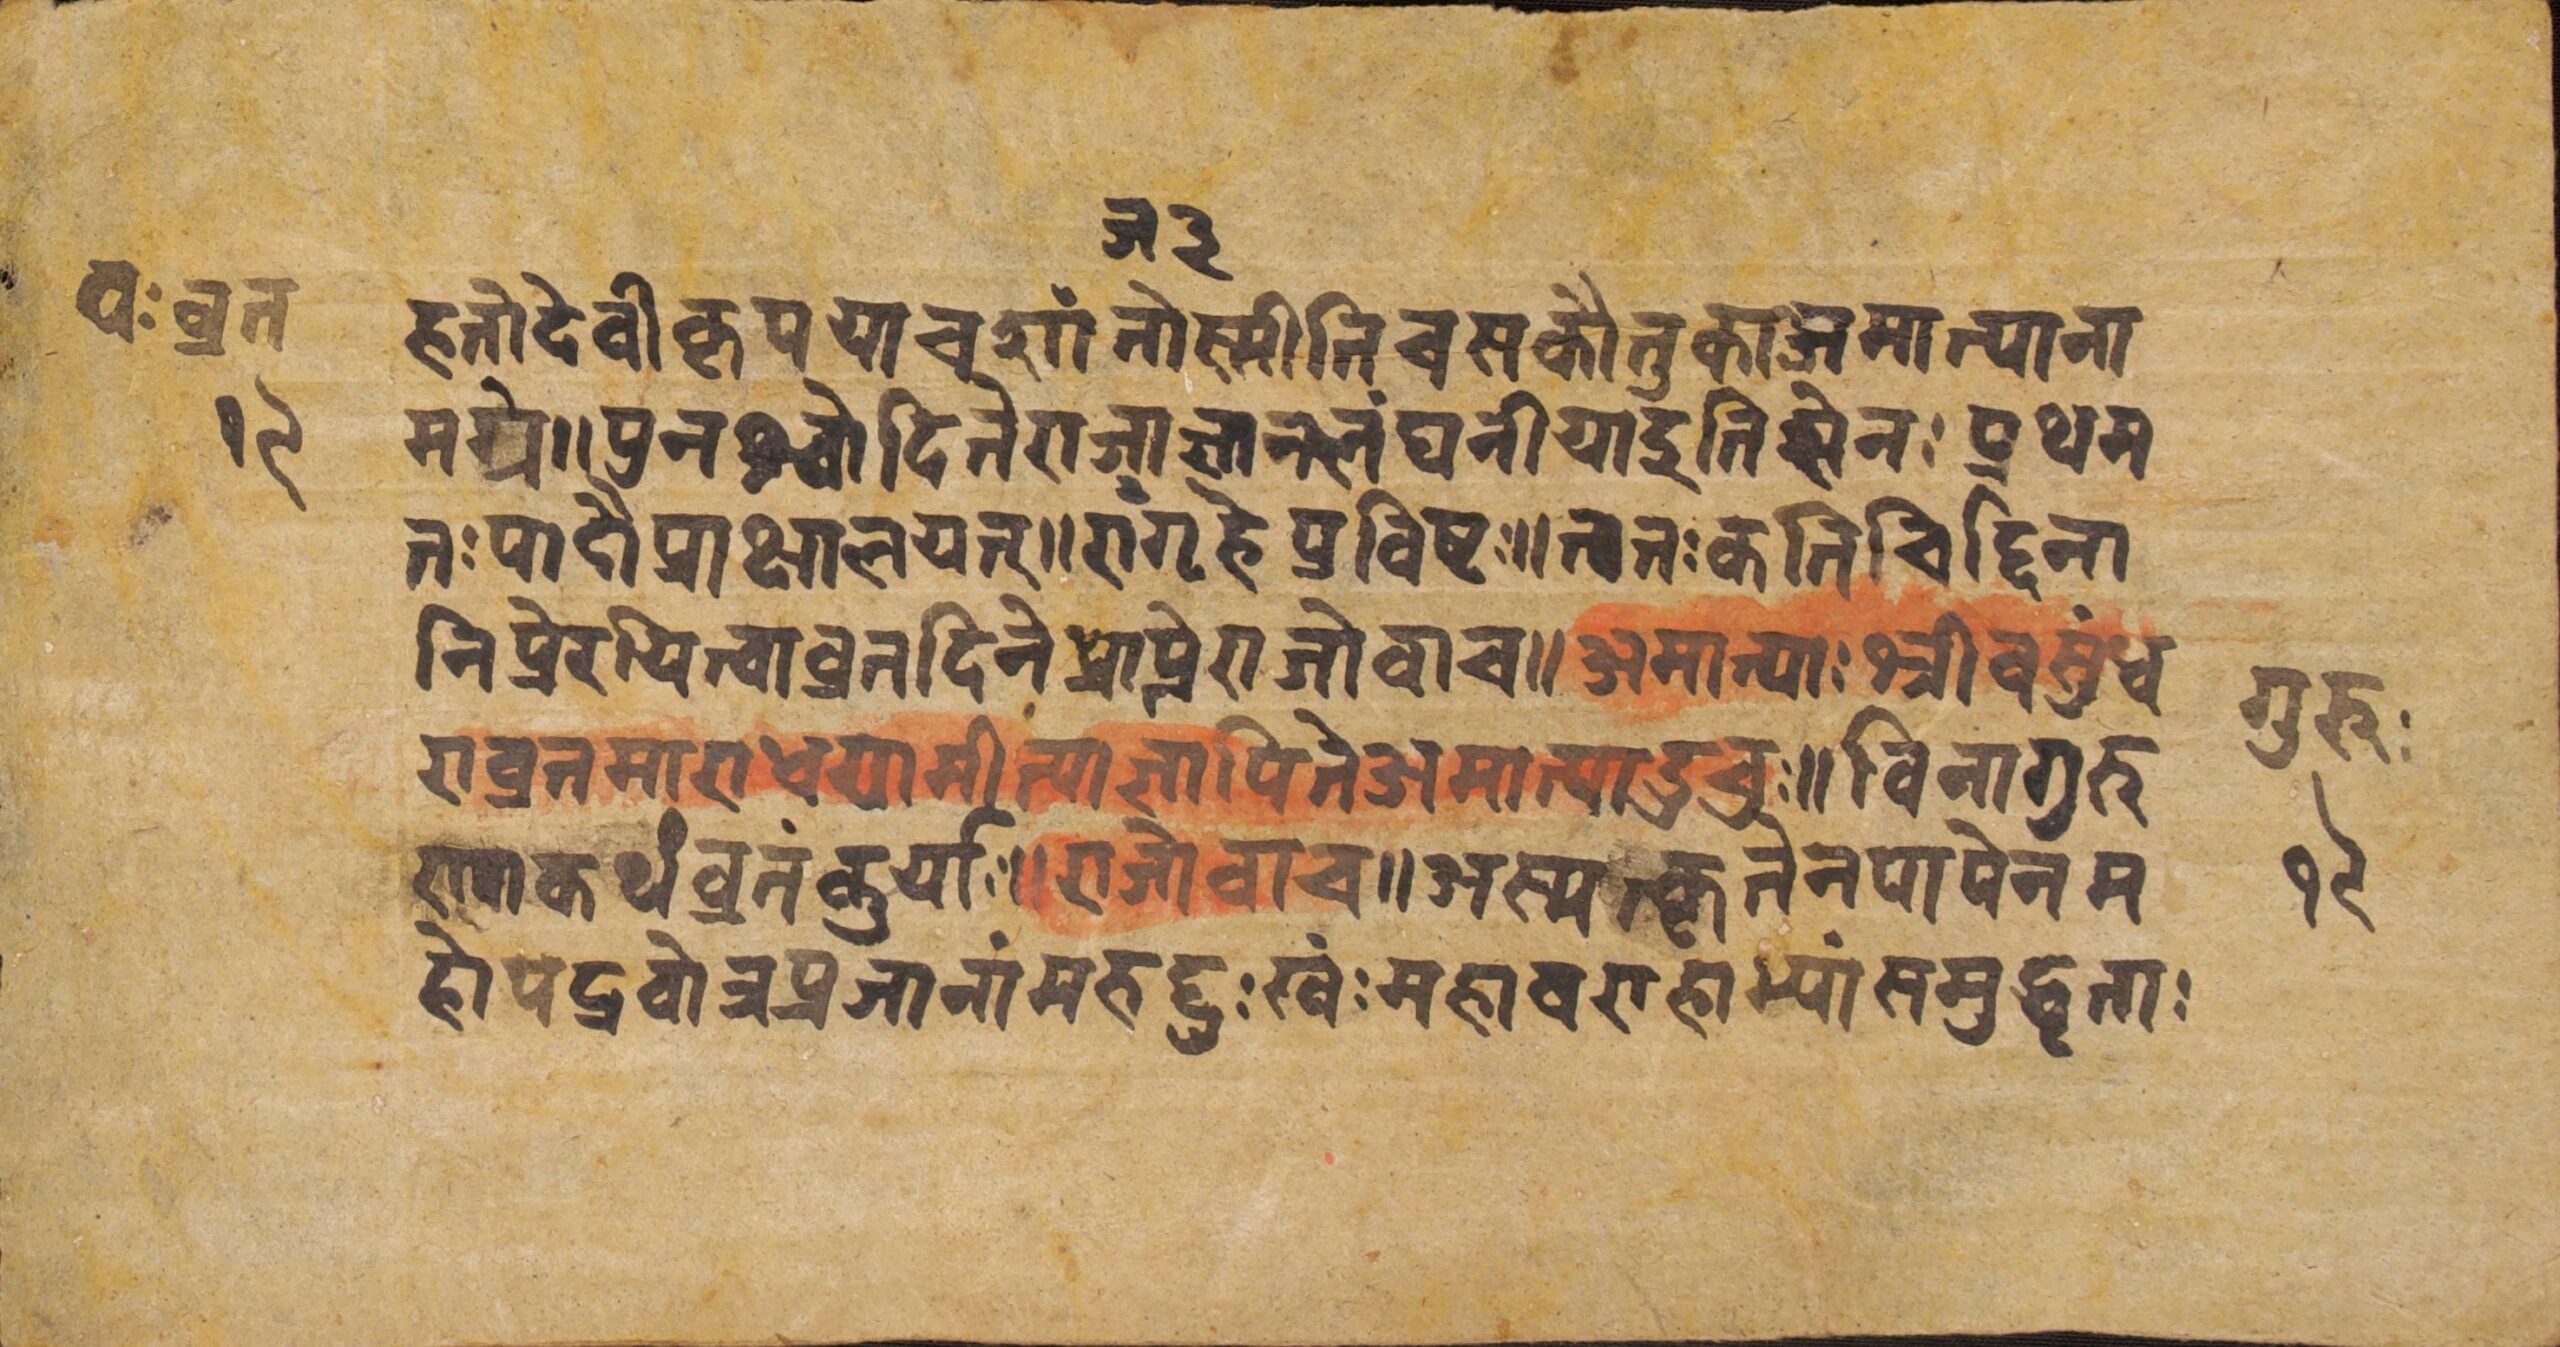 ज३
वः व्रत
१९
हतोदेवीकृपयाच्शांतोस्मीतिचसकौतुकाअमात्यानां
मग्रे॥पुनश्चोदिनेराजाज्ञानलंघनीयाइतिसेनः प्रथम
तःपादौप्राक्षालयत्॥रांगृहेप्रविष्टः॥ततःकतिचिद्दिना
निप्रेरयित्वाव्रतदिनेप्राप्तेराजोवाच॥अमात्याःश्रीवसुंध
राव्रतमाराधयामीत्याज्ञापितेअमात्याउचुः॥विनागुरु
कथंव्रतंकुर्याः॥राजोवाच॥अस्मत्कृतेनपापेनम
होपद्रवोत्रप्रजानांमहद्दुःखंःमहावराहाभ्यांसमुद्धृताः
गुरुः
१९